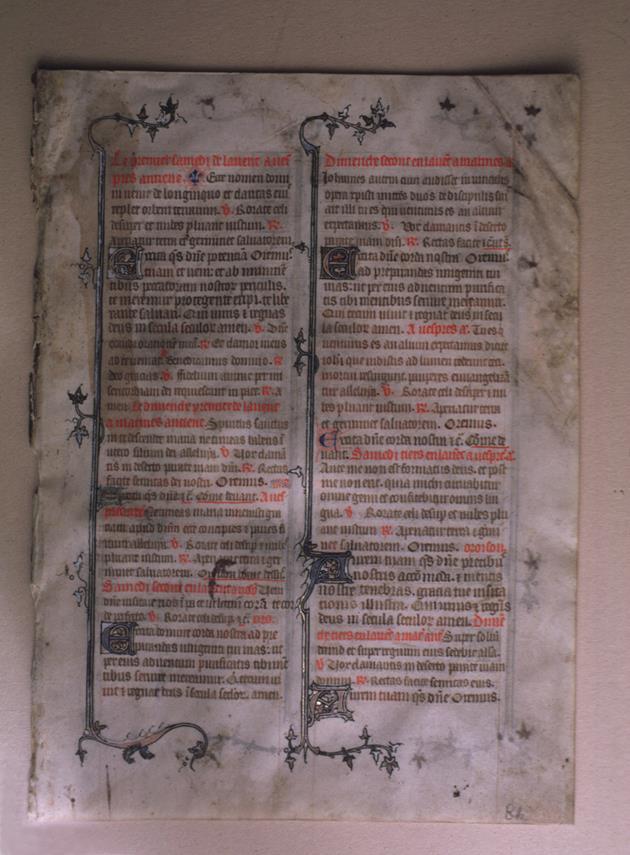 Le premier samedi de lauent a uef
pres antiene. Ecce nomen domi
ni uenit de longinquo et claritas eius
replet orbem terrarum. V. Rorate celi
desuper et nubes pluant iustum. R.
Aperiatur terra et germinet saluatorem
Excita qs dñe potentiā Oremus.
tuam et ueni ut ab iminẽti
bus peccatorum nostror periculis.
te mereamur protegente eripi. te libe
rante saluari. Qui uiuis et regnas
deus in secula seculor amen. V. Dñe
exaudi orationē meā. R. Et clamor meus
ad te ueniat. Benedicamus domino. R.
deo gracias V. fidelium anime per mi
sericordiam dei requiescant in pace. R. a
men. Le dimenche premier de lauent
a matines antiene. Spiritus sanctus
in te descendet maria ne timeas habens ī
utero filium dei alleluya. V. Vox claman
tis in deserto parate uiam dñi. R. Rectas
facite semitas dei nostri. Oremus.
Excita qs dñe
Ne timeas maria inuenisti gra
tiam apud dñm ecce concipies et paries fi
lium alleluya. V. Rorate celi desup et nubes
pluant iustum. R. Aperiatur terra et ger
minet saluatorem.
Samedi second
de perfecto. V. Rorate celi desup et c̄.
Excita domine corda nostra ad pre
parandas unigeniti tui uias: ut
per eius aduentum purificatis tibi mē
tibus seruire mereamur. Qui tecum ui
uit et regnat deus ī secula seculor. amen.
Dimenche second en lauēt a matines a
Iohannes autem cum audisset in uinculis
opera xpisti mittēs duos de discipulis sui
ait illi tu es qui uenturus es an alium
expectamus. V. Vox clamantis ī deserto
parate uiam dñi. R. Rectas facite
Excita dñe corda nostra Oremus.
ad preparandas unigeniti tui
uias: ut per eius aduentum purifica
tis tibi mentibus seruire mereamur.
Qui tecum uiuit et regnat deus in secu
la seculor amen. A uespres a. Tu es q
uenturus es an alium expectamus dicite
iohi que uidistis ad lumen redeunt ceci.
mortui resurgunt pauperes euangelizā
tur alleluya. V. Rorate celi desuper et nu
bes pluant iustum. R. Aperiatur terra
et germinet saluatorem. Oremus.
Excita dñe corda nostra et c̄. Cōme de
uant. Samedi tiers en lauēt a uespres a.
Ante me non est formatus deus. et post
me non erit. quia michi curuabitur
omne genu et confitebitur omnis lin
gua. V. Rorate celi desup et nubes plu
ant iustum R. Aperiatur terra et germi
net saluatorem. Oremus. oroison
Aurem tuam qs dñe precibus
nostris accōmoda. et mentis
nostre tenebras. gracia tue uisita
tionis illustra. Qui uiuis et regnas
deus in secula seculor amen. Dimen
che tiers en lauēt a mat ant. Super soliū
dauid et super regnum eius sedebit alla.
V Vox clamantis in deserto parate uiam
domini. R. Rectas facite semitas eius.
Aurem tuam qs dñe Oremus.